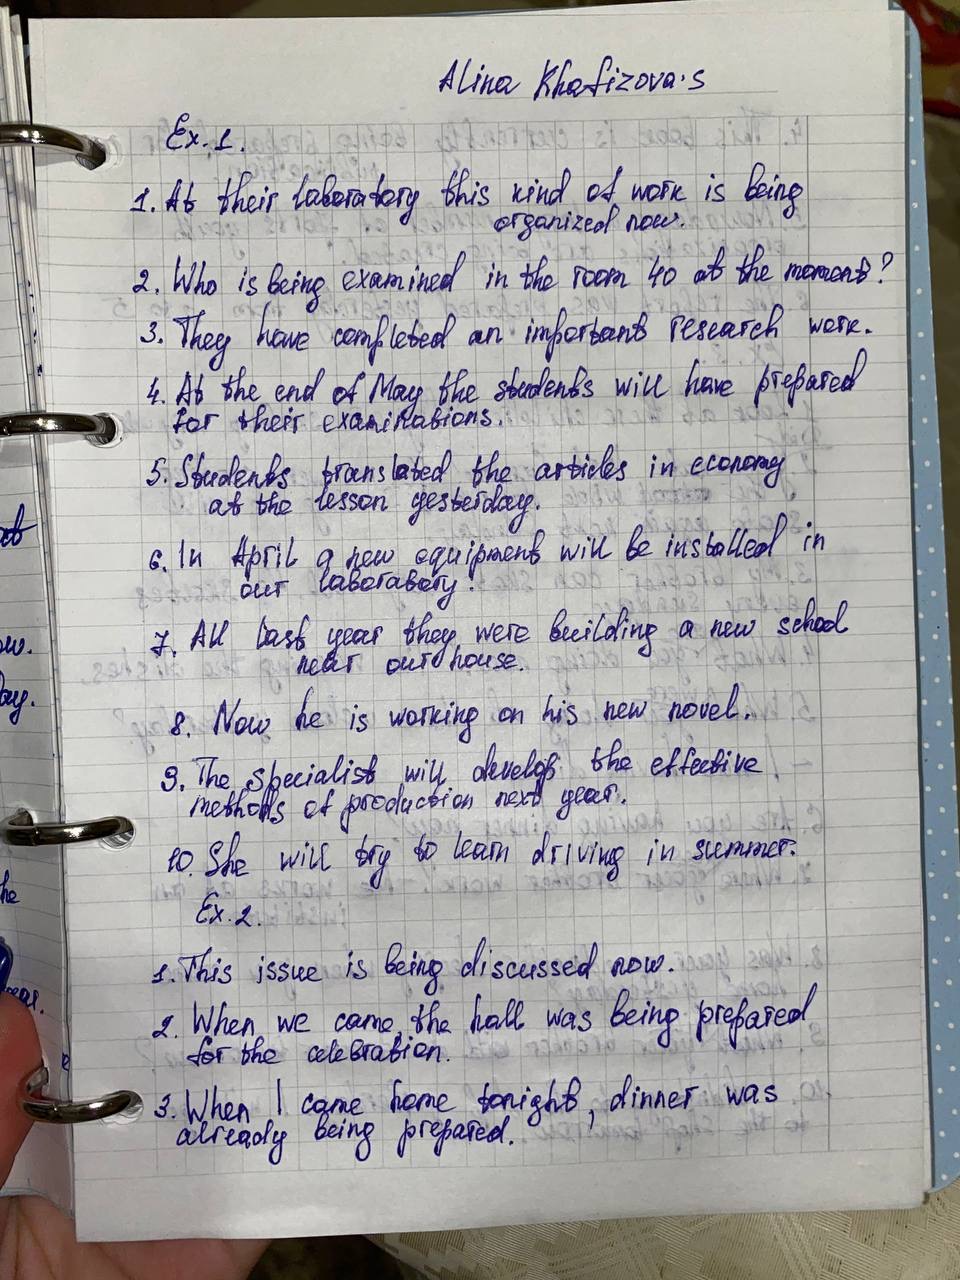 Alina Khafizova's
Ex. 1.
1. At their laboratory this kind of work is being
organized now.
2. Who is being examined in the room 40 at the moment?
3. They have completed an important research work.
4. At the end of May the students will have prepared
for their examinations.
5. Students translated the articles in economy
at the lesson yesterday.
6. In April a new equipment will be installed in
our laboratory.
7. All last year they were building a new school
near our house.
8. Now he is working on his new novel.
9. The specialist will develop the effective
methods of production next year.
10. She will try to learn driving in summer.
Ex. 2.
1. This issue is being discussed now.
2. When we came, the hall was being prepared
for the celebration.
3. When I came home tonight, dinner was
already being prepared.